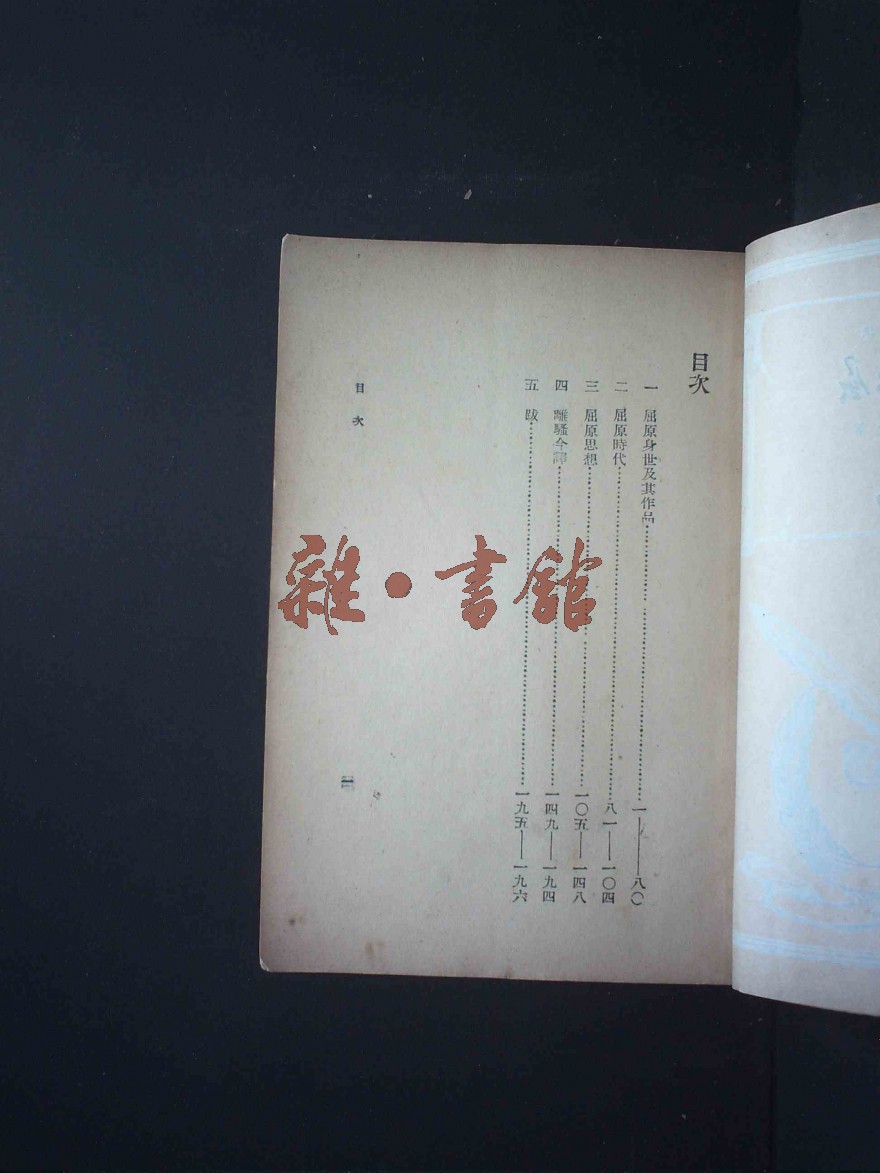 目次
一 屈原身世及其作品……一——八〇
二 屈原時代……八一——一〇四
三 屈原思想……一〇五——一四八
四 離騷今譯……一四九——一九四
五 跋……一九五——一九六
目次
雜·書館